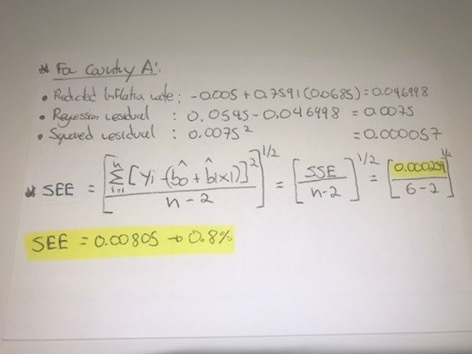 * For Country A:
• Predicted Inflation rate: -0.005 + 0.7591(0.0685) = 0.046998
• Regression residual : 0.0545 - 0.046998 = 0.0075
• Squared residual : 0.0075² = 0.000057
* SEE = [∑ⁿᵢ₌₁ [Yi - (b̂0 + b̂1x1)]² / n-2]^1/2 = [SSE / n-2]^1/2 = [0.000259 / 6-2]^½
SEE = 0.00805 → 0.8%